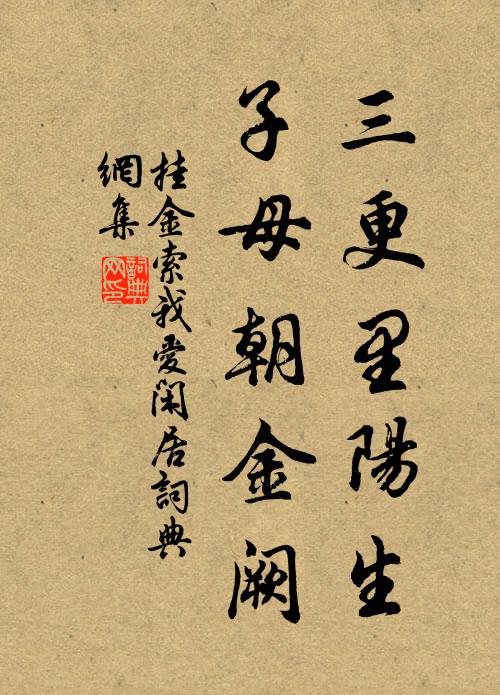 三更里陽生
子母朝金阙
挂金索我愛閑居詞典
網集
詞典
網印